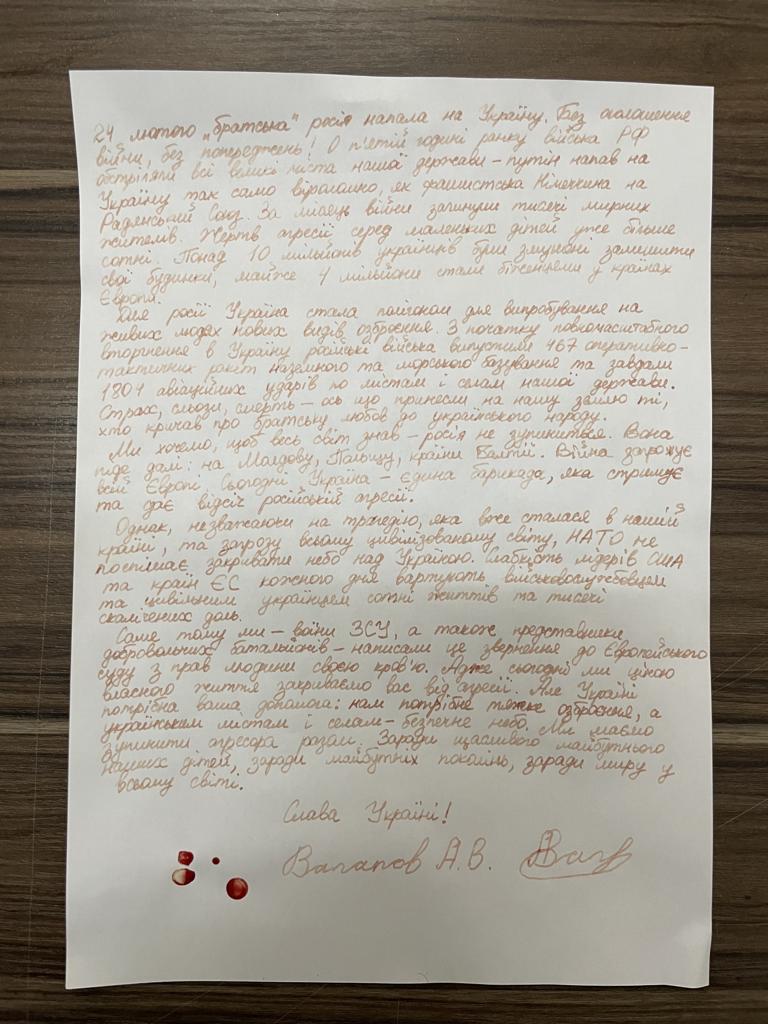 24 лютого „братська" росія напала на Україну. Без оголошення
війни, без попереджень! О п'ятій годині ранку війська РФ
обстріляли всі великі міста нашої держави – путін напав на
Україну так само віроломно, як фашистська Німеччина на
Радянський Союз. За місяць війни загинули тисячі мирних
жителів. Жертв агресії серед маленьких дітей уже більше
сотні. Понад 10 мільйонів українців були змушені залишити
свої будинки, майже 4 мільйони стали біженцями у країнах
Європи.
Для росії Україна стала полігоном для випробування на
живих людях нових видів озброєння. З початку повномасштабного
вторгнення в Україну російські війська випустили 467 оперативно-
тактичних ракет наземного та морського базування та завдали
1804 авіаційних ударів по містам і селам нашої держави.
Страх, сльози, смерть – ось що принесли на нашу землю ті,
хто кричав про братську любов до українського народу.
Ми хочемо, щоб весь світ знав – росія не зупиниться. Вона
піде далі: на Молдову, Польщу, країни Балтії. Війна загрожує
всій Європі. Сьогодні Україна – єдина барикада, яка стримує
та дає відсіч російській агресії.
Однак, незважаючи на трагедію, яка вже сталася в нашій
країні, та загрозу всьому цивілізованому світу, НАТО не
поспішає закривати небо над Україною. Слабкість лідерів США
та країн ЄС кожного дня вартують військовослужбовцям
та цивільним українцям сотні життів та тисячі
скалічених доль.
Саме тому ми – воїни ЗСУ, а також представники
добровольчих батальйонів – написали це звернення до Європейського
суду з прав людини своєю кров'ю. Адже сьогодні ми ціною
власного життя закриваємо вас від агресії. Але Україні
потрібна ваша допомога: нам потрібне тяжке озброєння, а
українським містам і селам – безпечне небо. Ми маємо
зупинити агресора разом. Заради щасливого майбутнього
наших дітей, заради майбутніх поколінь, заради миру у
всьому світі.
Слава Україні!
А.В.